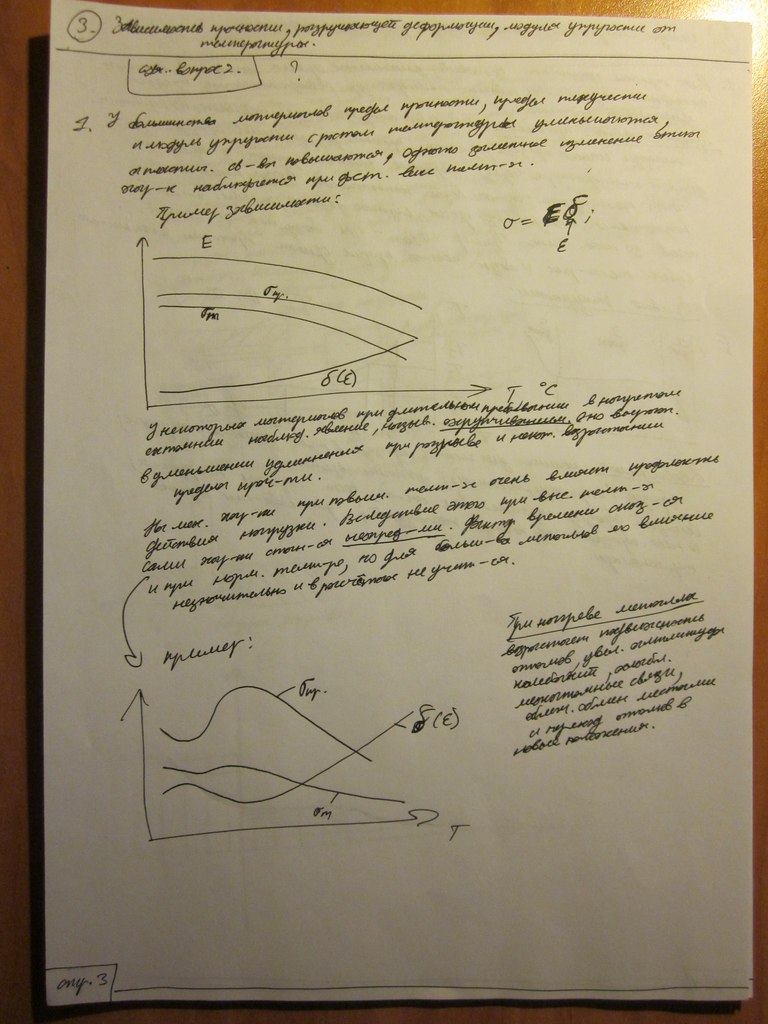 3. Зависимость прочности, разрушающей деформации, модуля упругости от
температуры.
см. вопрос 2. ?
1. У большинства материалов предел прочности, предел текучести
и модуль упругости с ростом температуры уменьшаются,
а пластич. св-ва повышаются, однако заметное изменение этих
хар-к наблюдается при дост. выс темп-х.
Пример зависимости:
σ = Eδ;
ε
E
σпр.
σт
δ(ε)
T °C
У некоторых материалов при длительном пребывании в нагретом
состоянии наблюд. явление, назыв. охрупчиванием. оно
в уменьшении удлинения при разрыве и некот. возрастании
предела проч-ти.
На мех. хар-ки при повыш. темп-х очень влияет
действия нагрузки. Вследствие этого при выс. темп-х
сами хар-ки стан-ся неопред-ми. Фактор времени сказ-ся
и при норм. темп-ре, но для больш-ва металлов его влияние
незначительно и в расчётах не учит-ся.
пример:
При нагреве металла
возрастает подвижность
атомов, увел. амплитуда
колебаний, ослабл.
межатомные связи,
облегч. обмен местами
и переход атомов в
новые положения.
σпр.
δ(ε)
σт
T
стр. 3